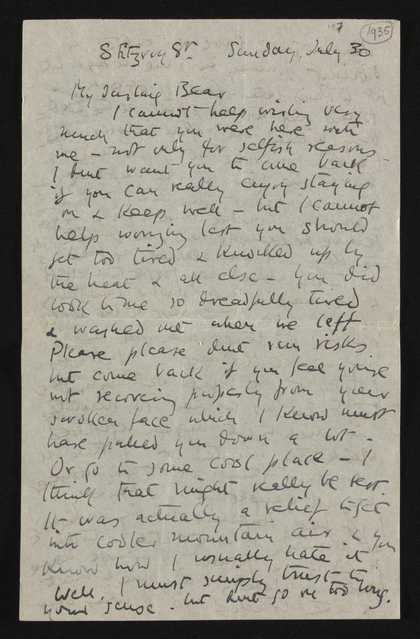 1935
8 Fitzroy St. Sunday, July 30
My darling Bear
I cannot help wishing very
much that you were here with
me – not only for selfish reasons
I dont want you to come back
if you can really enjoy staying
on & keep well – but I cannot
help worrying lest you should
get too tired & knocked up by
the heat & all else – you did
look to me so dreadfully tired
& washed out when we left
Please please dont run risks
but come back if you feel youre
not recovering properly from your
swollen face which I know must
have pulled you down a lot –
Or go to some cool place – I
think that might really be best.
It was actually a relief to get
into cooler mountain air & you
know how I usually hate it
Well, I must simply trust to
your sense. but dont go on too long.